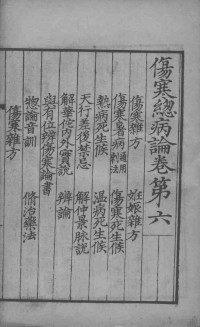 傷寒總病論卷第六
傷寒雜方　妊娠雜方
傷寒暑病通用刺法　傷寒死生候
熱病死生候　溫病死生候
天行差後禁忌　解仲景脉說
解華佗內外實說　辨論
與有位辨傷寒論書
惣論音訓　脩治藥法
傷寒雜方